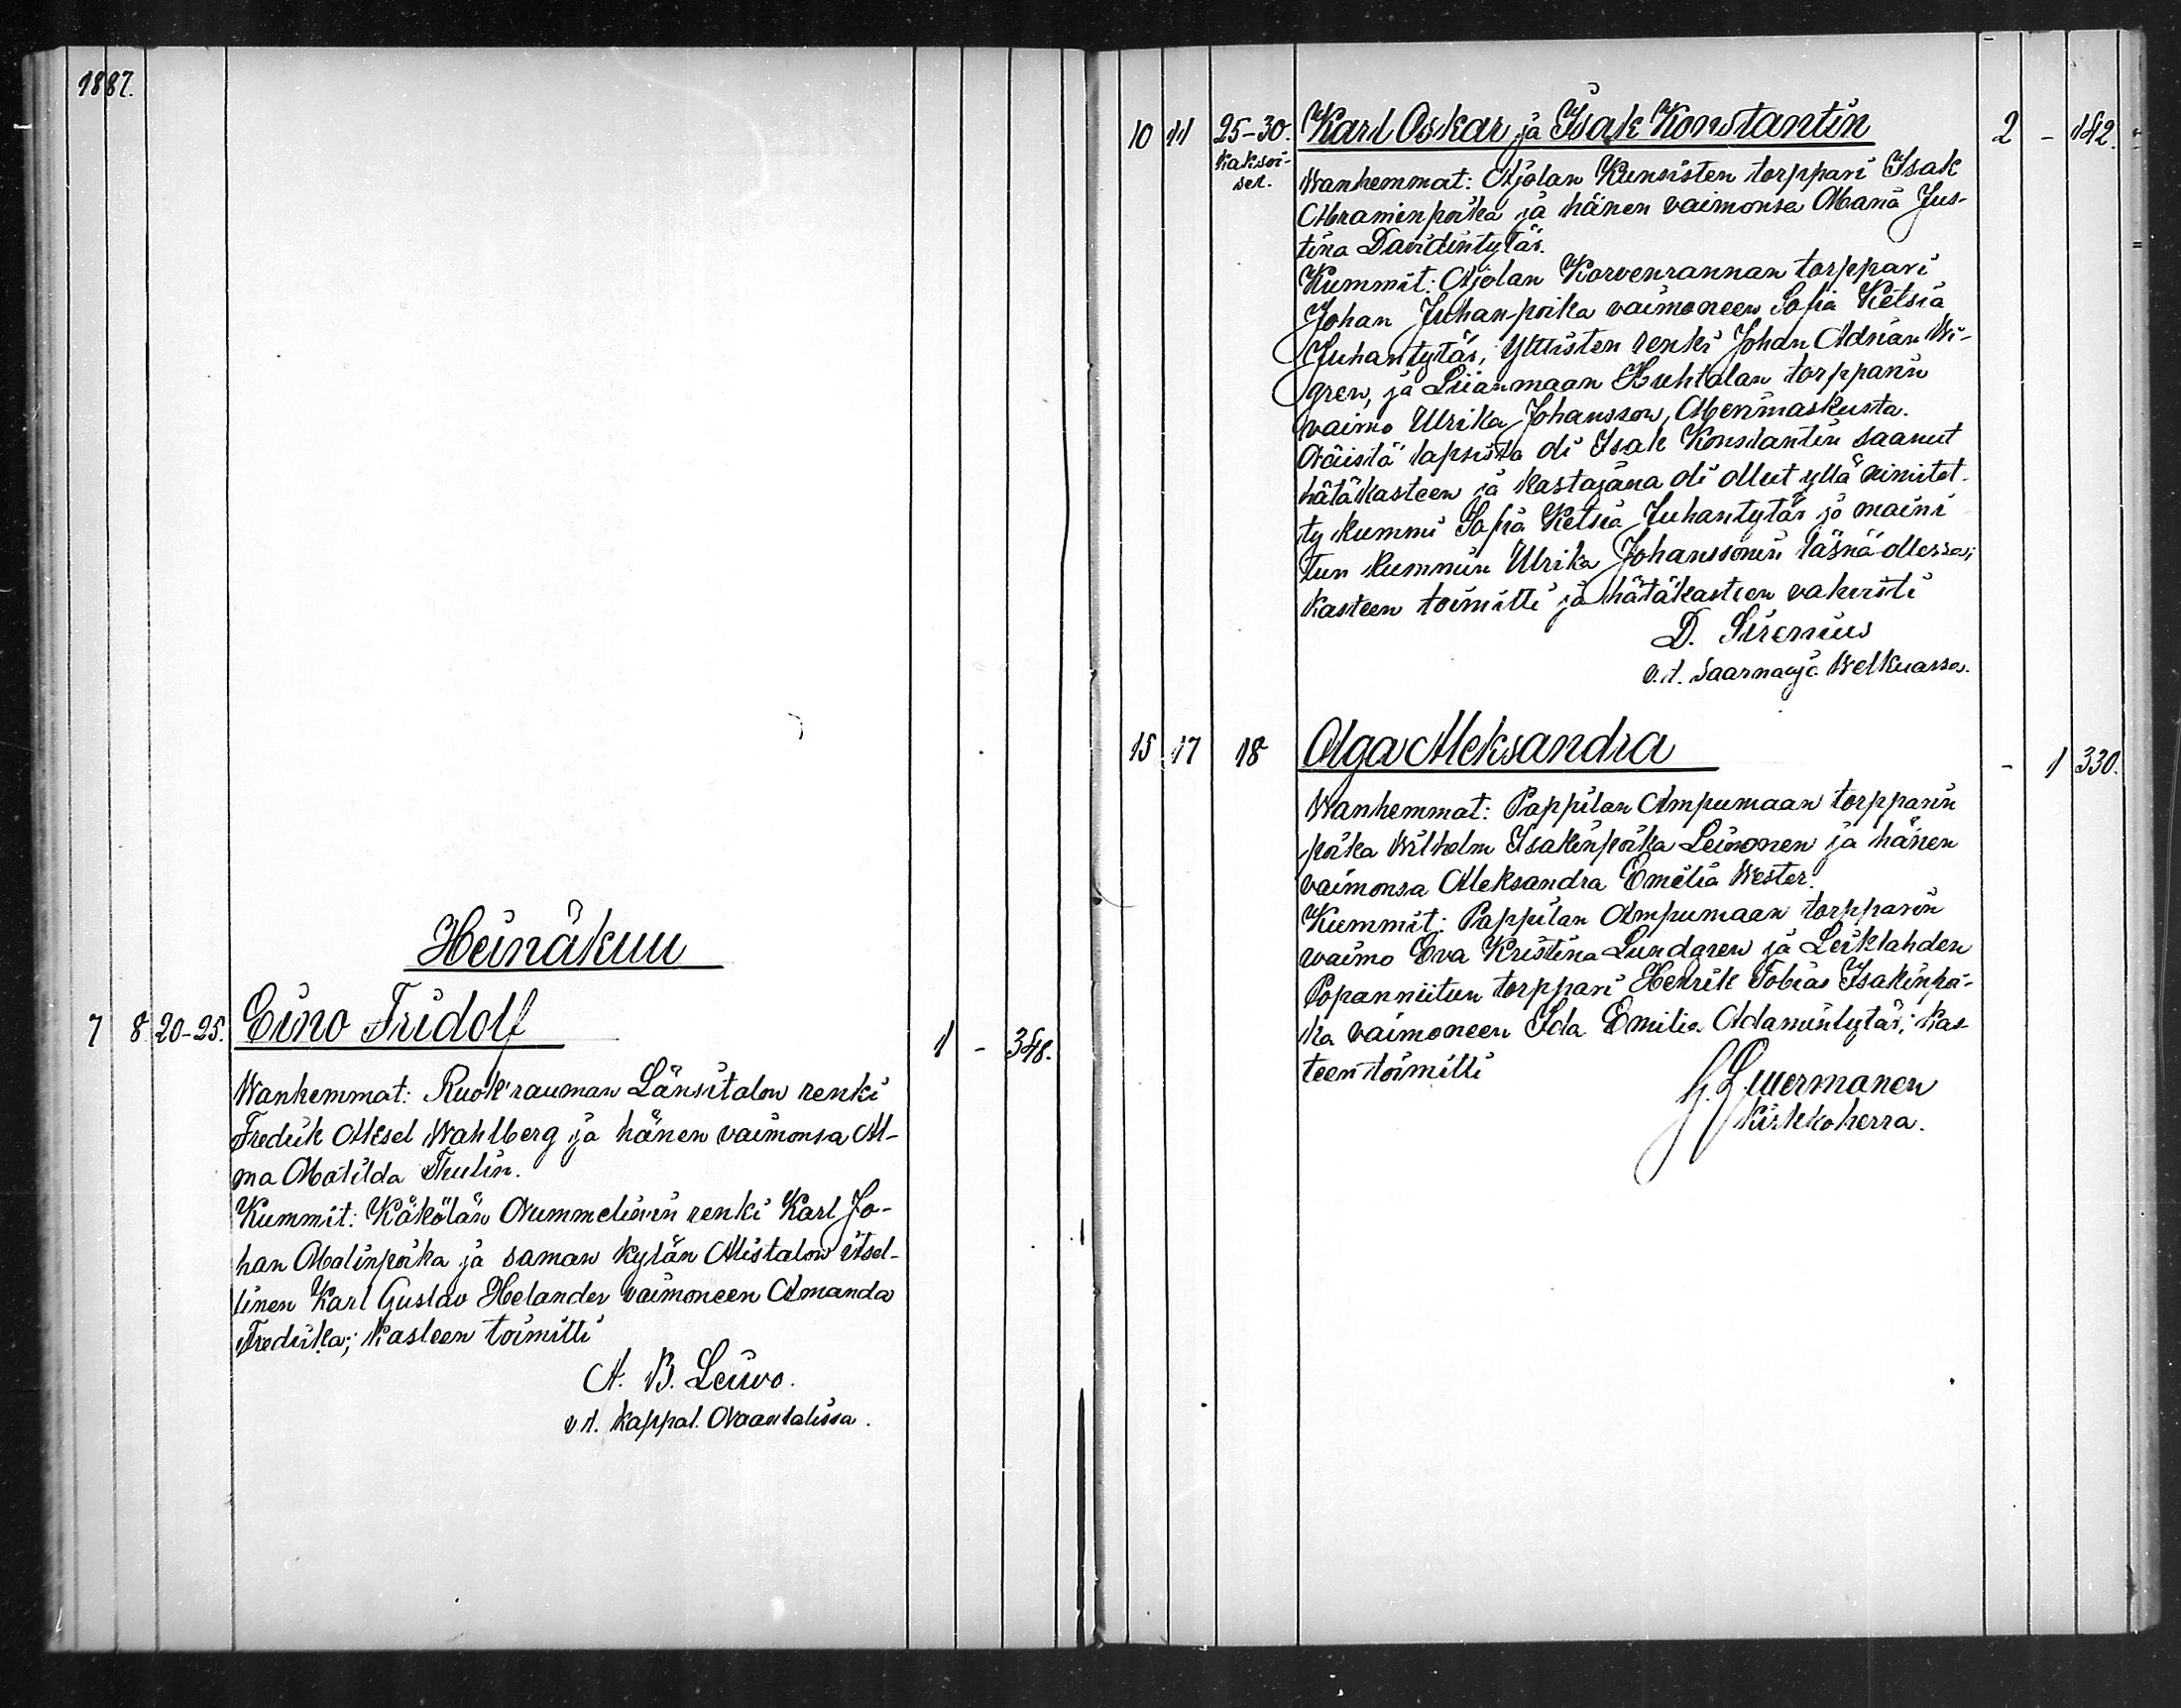 1887.
Heinäkuu
7 8 20-25. Eino Fridolf 1 - 348.
Wanhemmat: Ruok'rauman Länsitalon renki
Fredrik Aksel Wahlberg ja hänen vaimonsa Al-
ma Matilda Thulin.
Kummit: Käkölän Nummelinin renki Karl Jo-
han Malinpoika ja saman kylän Alistalon itsel-
linen Karl Gustav Helander vaimoneen Amanda
Fredrika; kasteen toimitti
A. B. Leiwo.
v.t. kappal. Naantalissa.
10 11 25-30. Karl Oskar ja Isak Konstantin 2 - 142.
Kaksoi-
set.
Wanhemmat: Ajolan Kunsisten torppari Isak
Abraminpoika ja hänen vaimonsa Maria Jus-
tina Davidintytär.
Kummit: Ajolan Korvenrannan torppari
Johan Juhanpoika vaimoneen Sofia Ketsia
Juhantytär, Ylttisten renki Johan Adrian Wi-
gren, ja Liianmaan Huhtalan torpparin
vaimo Ulrika Johansson, Merimaskusta.
Näistä lapsista oli Isak Konstantin saanut
hätäkasteen ja kastajana oli ollut yllä nimitet-
ty kummi Sofia Ketsia Juhantytär ja maini
tun kummin Ulrika Johanssonin läsnä ollessa;
kasteen toimitti ja hätäkasteen vakuisti
D. Sirenius
v.t. Saarnaaja Welkuassa.
15 17 18 Olga Aleksandra - 1 330.
Wanhemmat: Pappilan Ampumaan torpparin
poika Wilhelm Isakinpoika Leinonen ja hänen
vaimonsa Aleksandra Emilia Wester.
Kummit: Pappilan Ampumaan torpparin
vaimo Eva Kristina Lundgren ja Leiklahden
Popanniitun torppari Henrik Tobias Isakinpoi-
ka vaimoneen Ida Emilia Adamintytär; kas-
teen toimitti
Kirkkoherra.